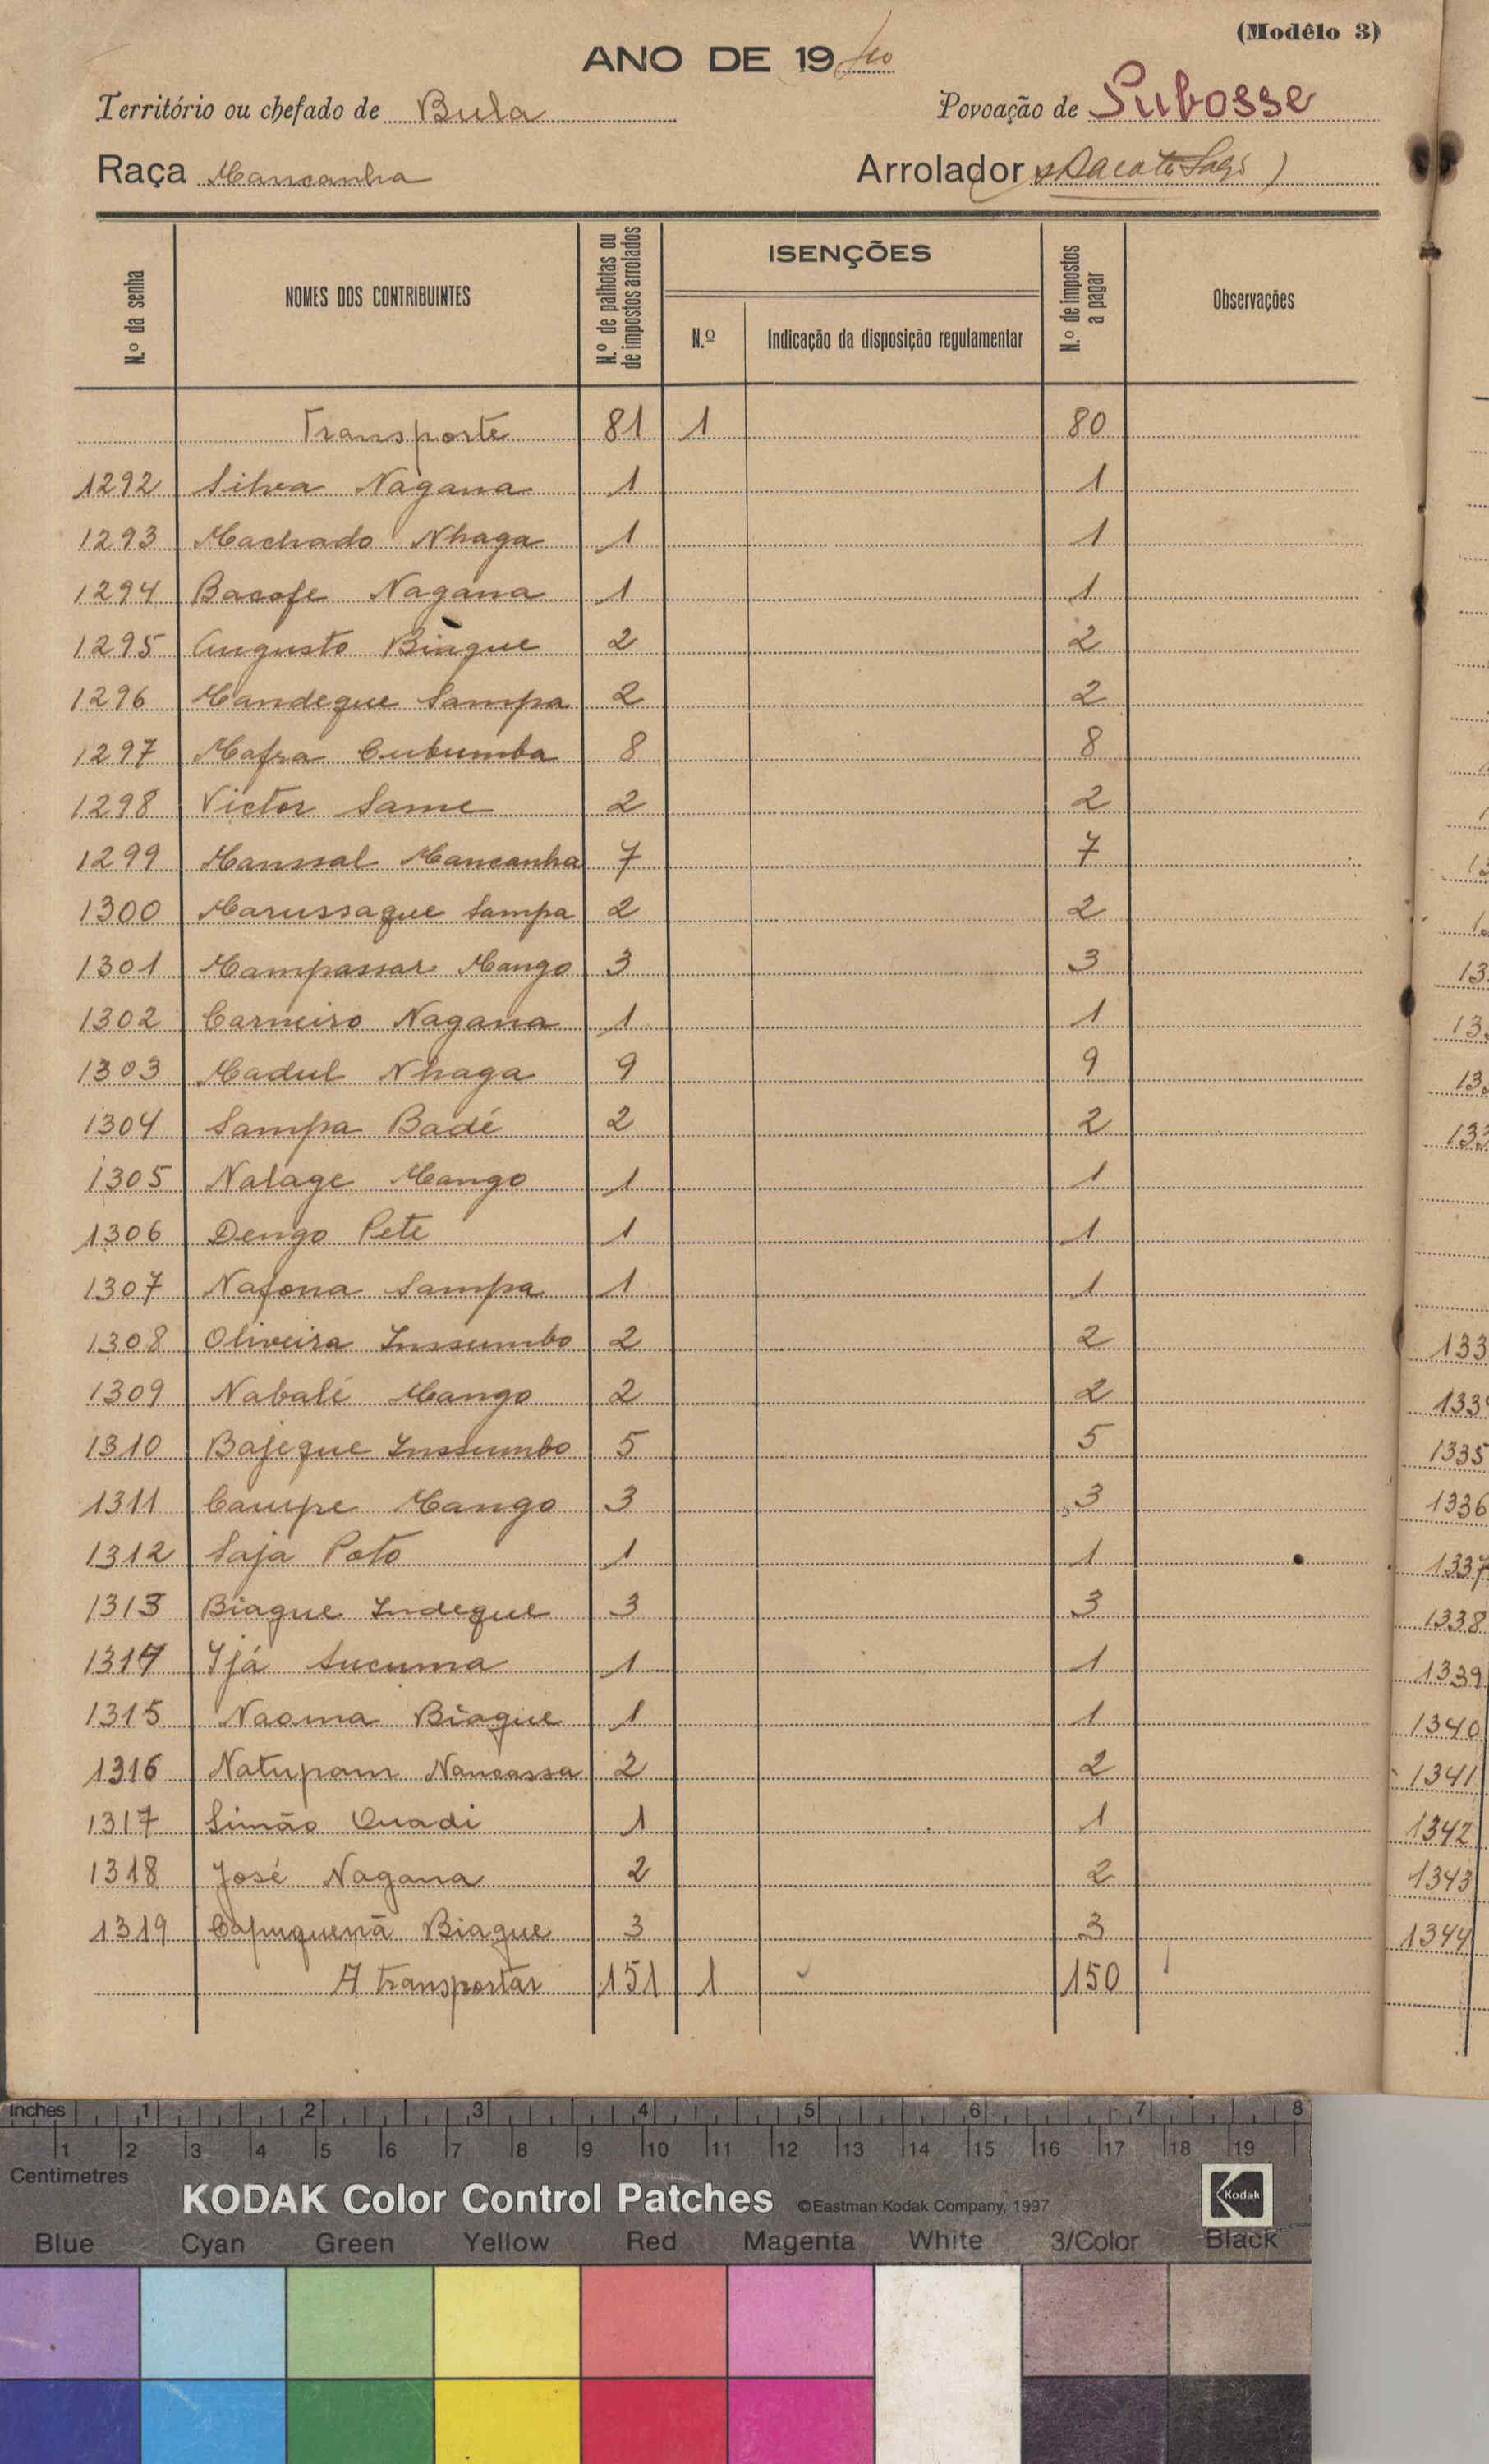 (Modêlo 3)
ANO DE 19 40
Território ou chefado de Bula Povoação de Pubosse
Raça Mancanha Arrolador
N.º da senha NOMES DOS CONTRIBUINTES N.º de palhotas ou de impostos arrolados ISENÇÕES N.º de impostos a pagar Observações
N.º Indicação da disposição regulamentar
Transporte 81 1 80
1292 Silva Nagana 1 1
1293 Machado Nhaga 1 1
1294 Bacofe Nagana 1 1
1295 Augusto Biague 2 2
1296 Mandeque Sampa 2 2
1297 Mafra Cubumba 8 8
1298 Victor Same 2 2
1299 Manssal Mancanha 7 7
1300 Marussaque Sampa 2 2
1301 Mampassar Mango 3 3
1302 Carneiro Nagana 1 1
1303 Madul Nhaga 9 9
1304 Sampa Badé 2 2
1305 Nalage Mango 1 1
1306 Dengo Pete 1 1
1307 Nafona Sampa 1 1
1308 Oliveira Insumbo 2 2
1309 Nabalé Mango 2 2
1310 Bajeque Inssumbo 5 5
1311 Campe Mango 3 3
1312 Saja Poto 1 1
1313 Biague Indeque 3 3
1314 Ijá Sucuma 1 1
1315 Naoma Biague 1 1
1316 Natupam Nancassa 2 2
1317 Simão Quadi 1 1
1318 José Nagana 2 2
1319 Biague 3 3
A transportar 151 1 150
133
1335
1336
1337
1338
1339
1340
1341
1342
1343
1344
inches 1 2 3 4 5 6 7 8
1 2 3 4 5 6 7 8 9 10 11 12 13 14 15 16 17 18 19
Centimetres
KODAK Color Control Patches ©Eastman Kodak Company, 1997 Kodak
Blue Cyan Green Yellow Red Magenta White 3/Color Black